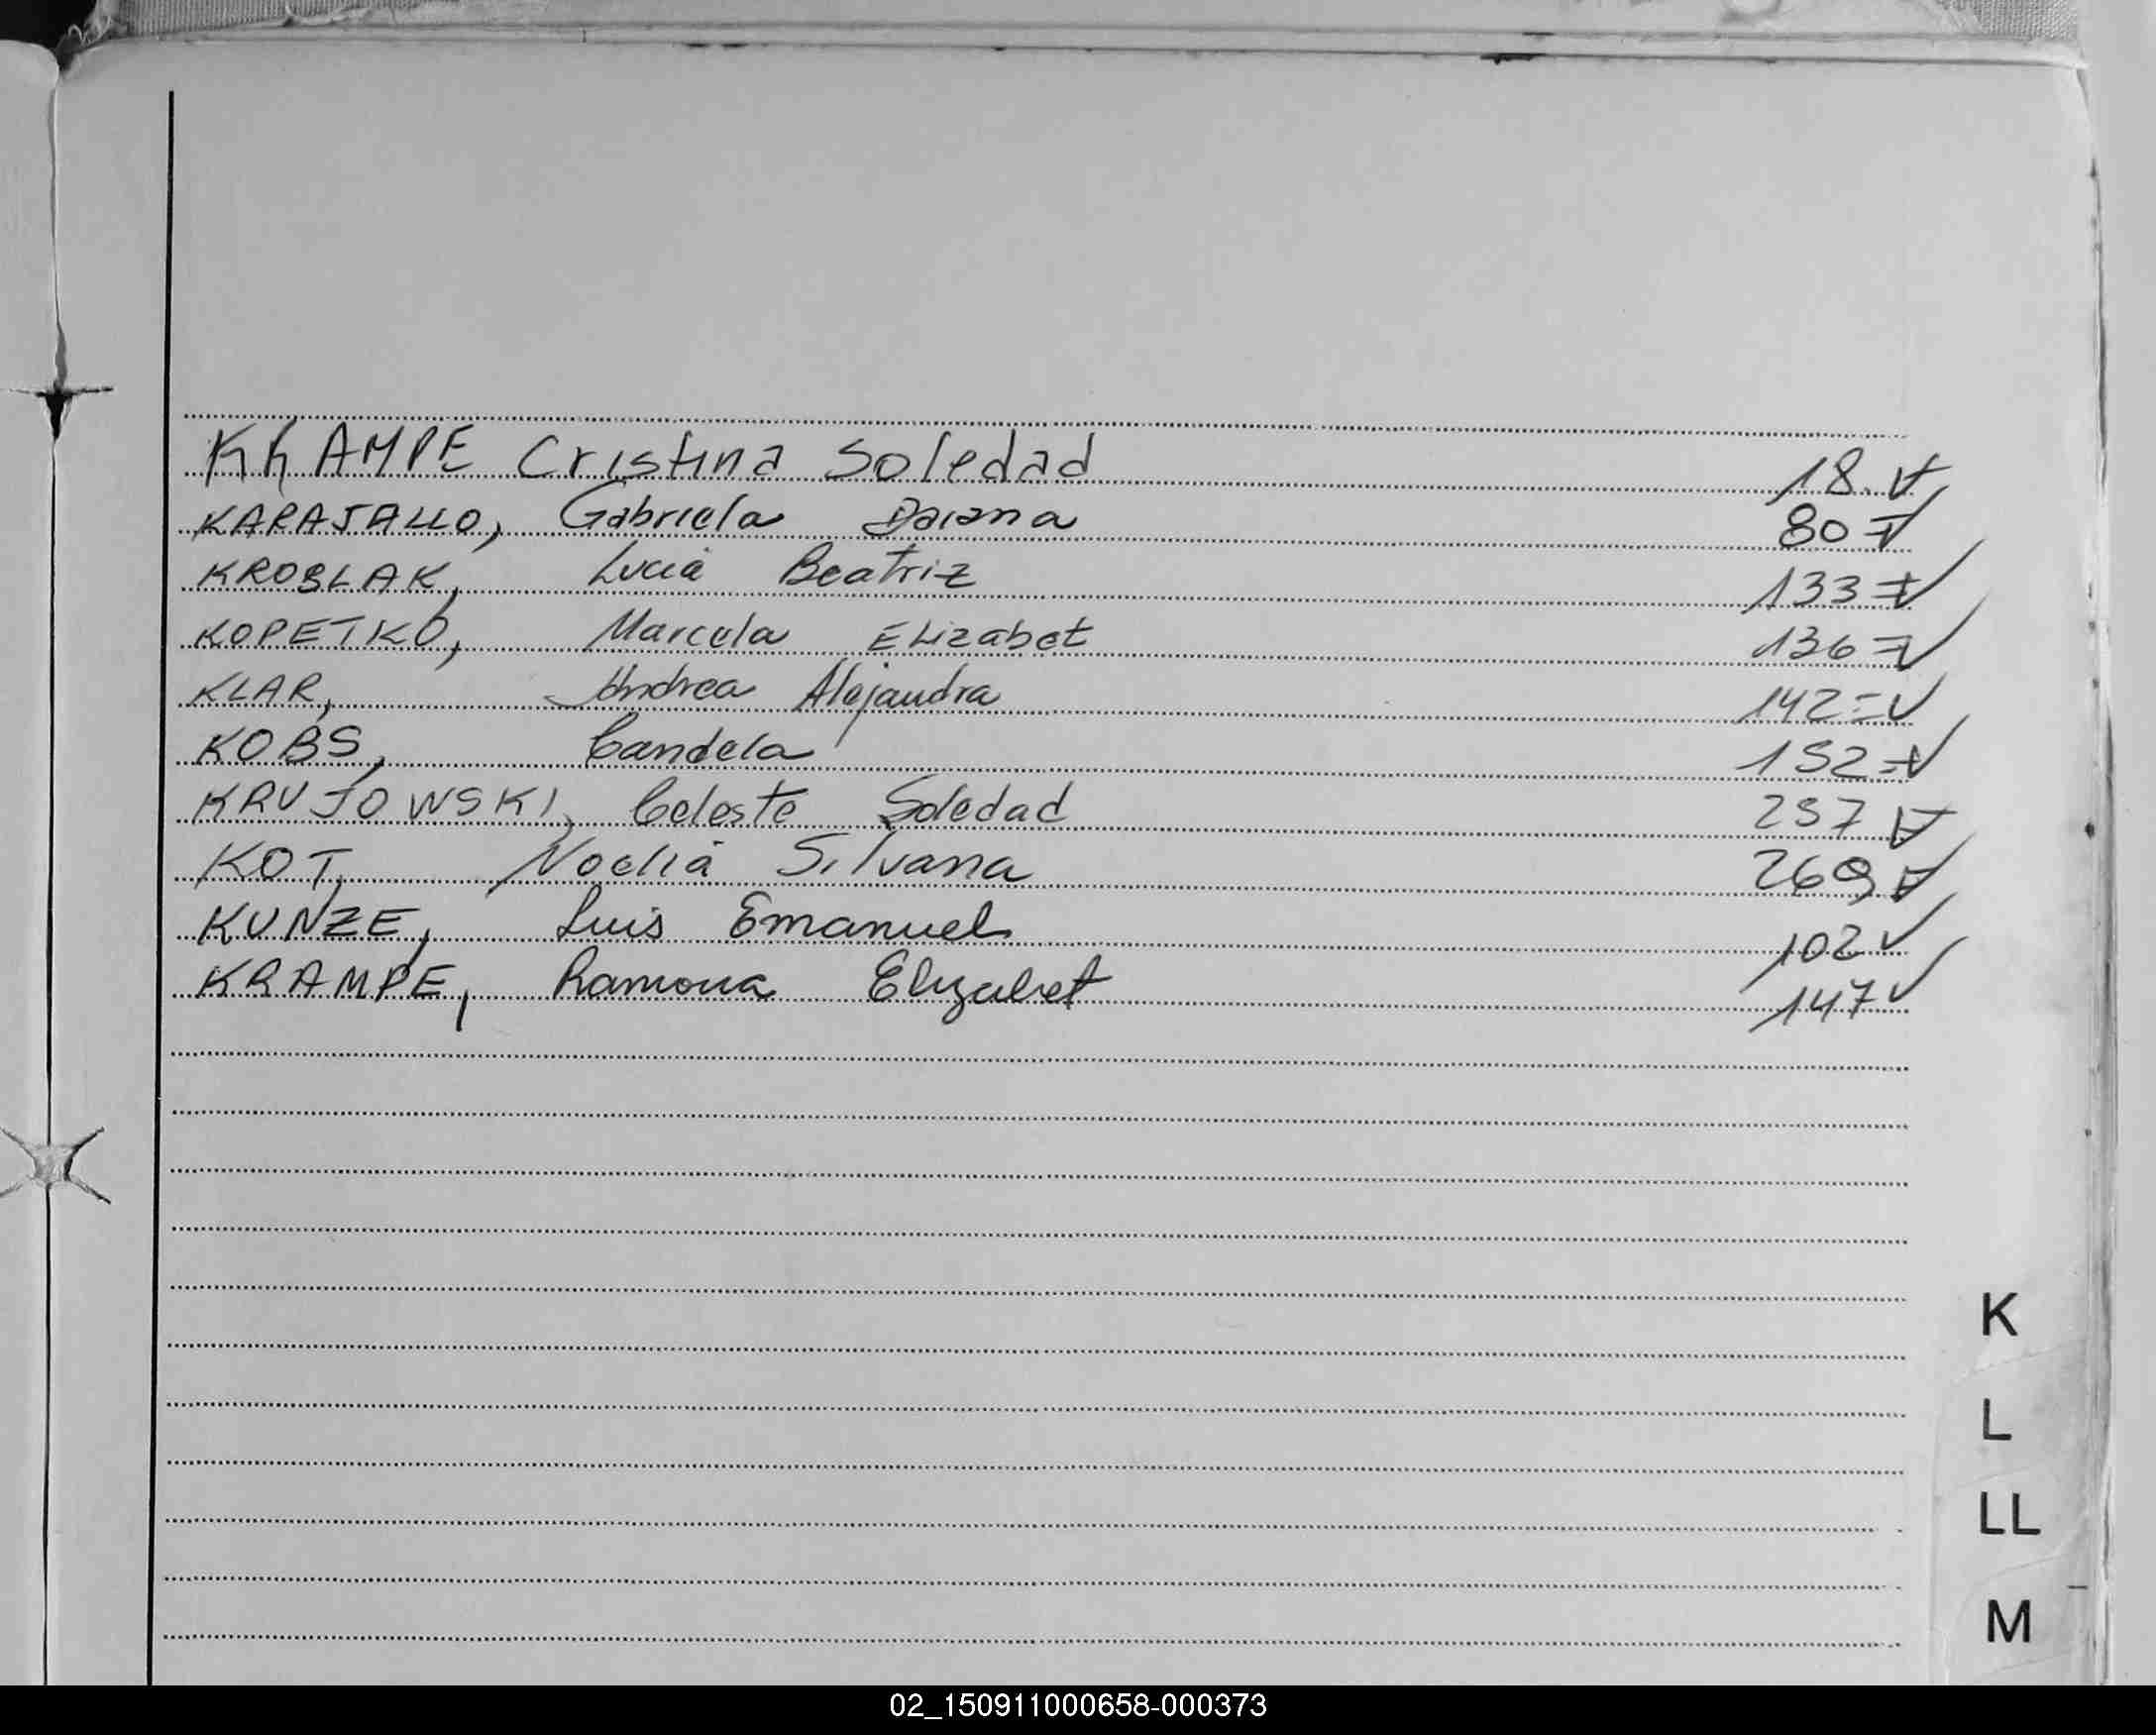 KRAMPE Cristina Soledad 18.
KARAJALLO, Gabriela Daiana 80=
KROSLAK, Lucia Beatriz 133=
KOPETKO, Marcela Elizabet 136=
KLAR, Andrea Alejandra 142=
KOBS, Candela 152=
KRUJOWSKI, Celeste Soledad 257
KOT, Noelia Silvana 269
KUNZE, Luis Emanuel 102
KRAMPE, Ramona Elizabet 147
K
L
LL
M
02_150911000658-000373